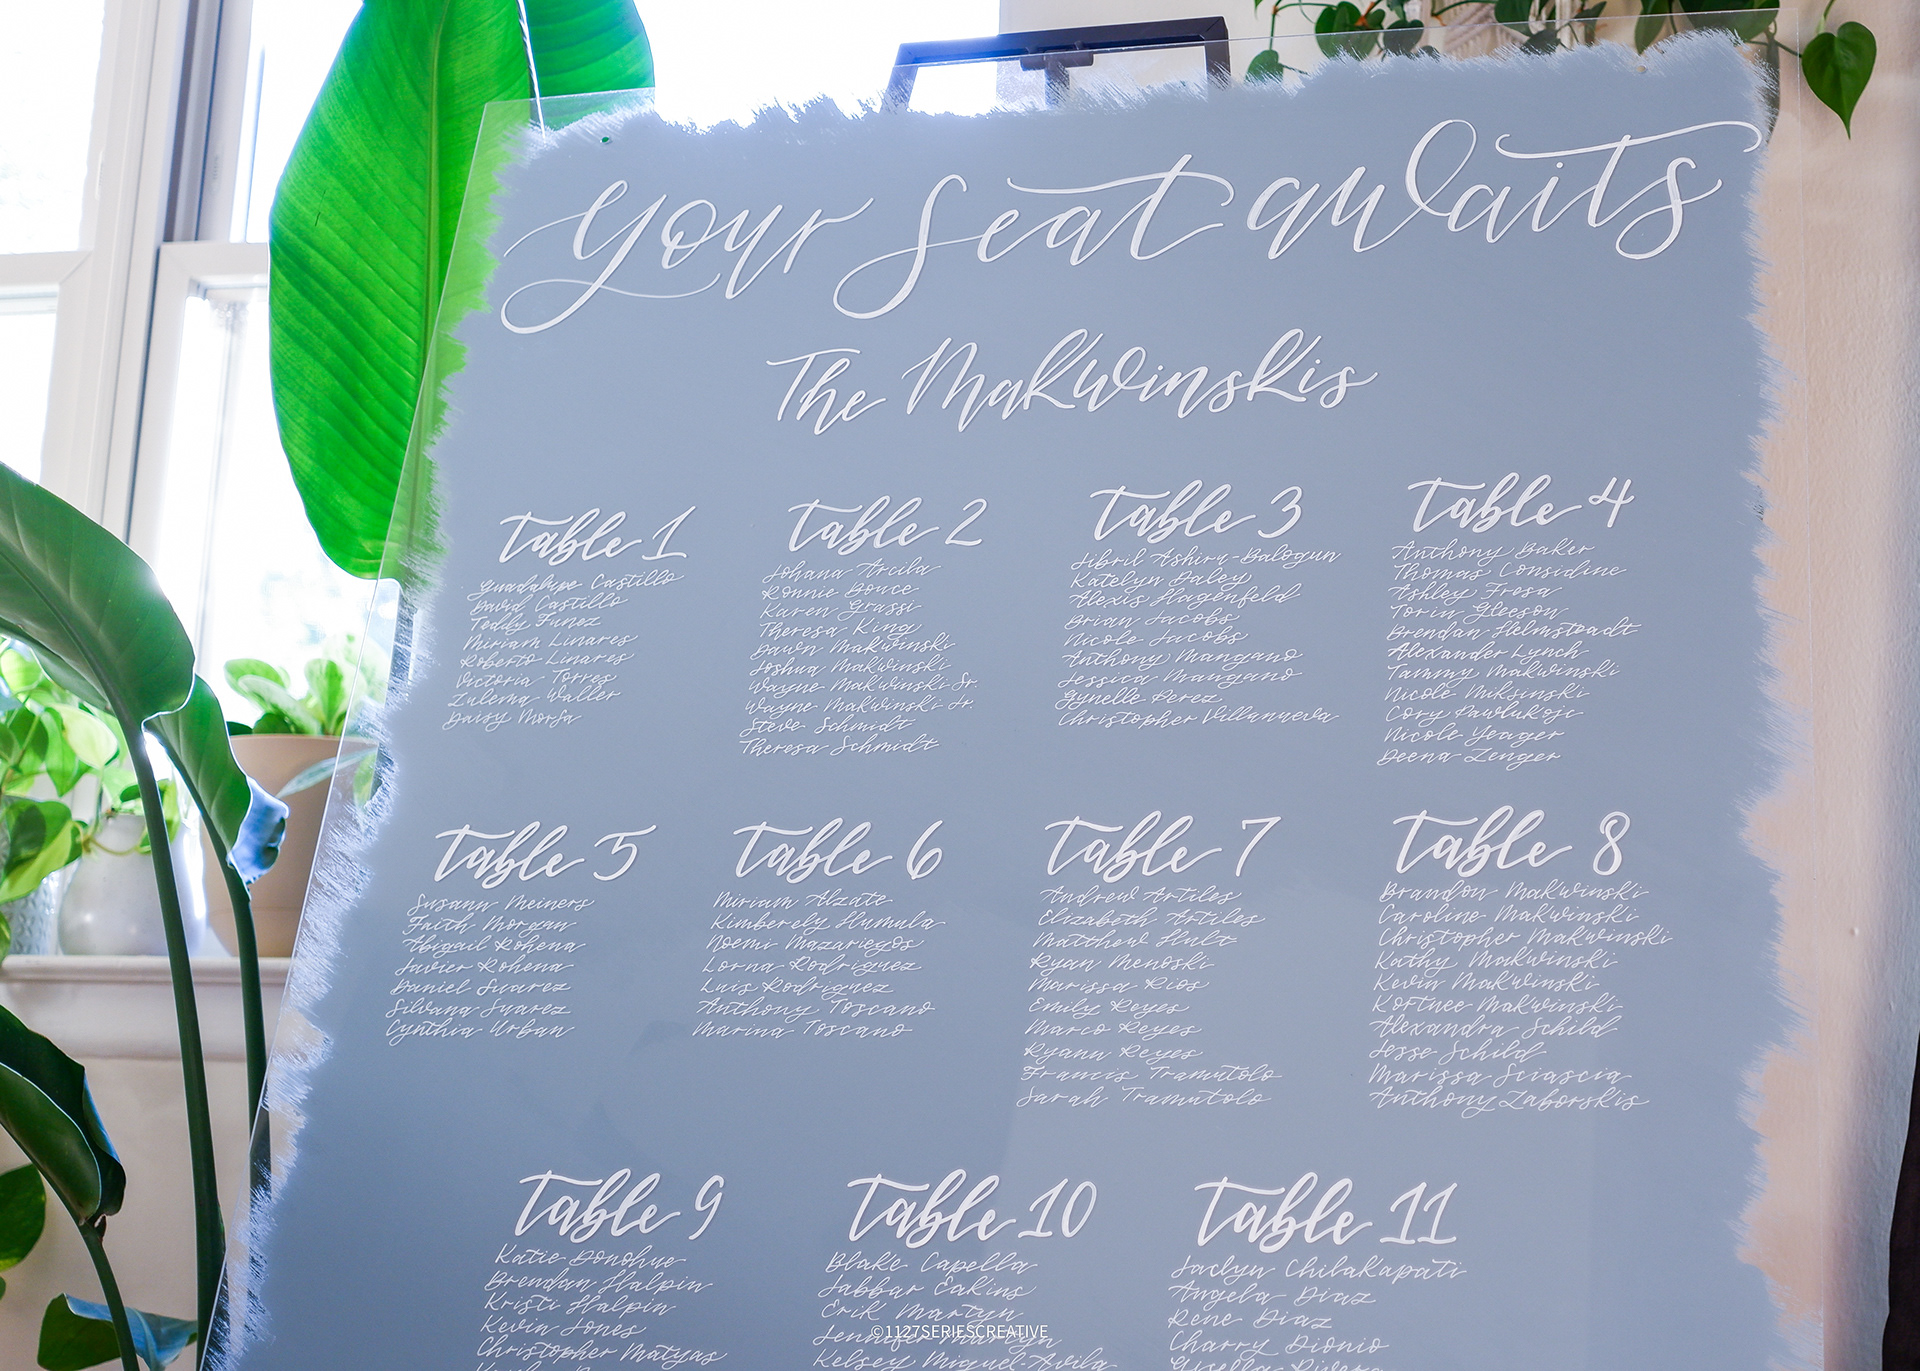 your seat awaits
The Makwinskis
Table 1
Guadalupe Castillo
David Castillo
Teddy Funez
Miriam Linares
Roberto Linares
Victoria Torres
Zulema Waller
Daisy Morfa
Table 2
Johana Arcila
Ronnie Bouce
Karen Grassi
Theresa King
Dawn Makwinski
Joshua Makwinski
Wayne Makwinski Sr.
Wayne Makwinski Jr.
Steve Schmidt
Theresa Schmidt
Table 3
Jibril Ashiru-Balogun
Katelyn Daley
Alexis Hagenfeld
Brian Jacobs
Nicole Jacobs
Anthony Mangano
Jessica Mangano
Gynelle Perez
Christopher Villanueva
Table 4
Anthony Baker
Thomas Considine
Ashley Fresa
Torin Gleeson
Brendan Helmstaedt
Alexander Lynch
Tammy Makwinski
Nicole Miksinski
Cory Pawlukojc
Nicole Yeager
Deena Zenger
Table 5
Susann Meiners
Faith Morgan
Abigail Rohena
Javier Rohena
Daniel Suarez
Silvana Suarez
Cynthia Urban
Table 6
Miriam Alzate
Kimberely Humula
Noemi Mazariegos
Lorna Rodriguez
Luis Rodriguez
Anthony Toscano
Marina Toscano
Table 7
Andrew Artiles
Elizabeth Artiles
Matthew Hult
Ryan Menoski
Marissa Rios
Emily Reyes
Marco Reyes
Ryann Reyes
Francis Tramutolo
Sarah Tramutolo
Table 8
Brandon Makwinski
Caroline Makwinski
Christopher Makwinski
Kathy Makwinski
Kevin Makwinski
Kortnee Makwinski
Alexandra Schild
Jesse Schild
Marissa Sciascia
Anthony Zaborskis
Table 9
Katie Donohue
Brendan Halpin
Kristi Halpin
Kevin Jones
Christopher Matyas
Table 10
Blake Capella
Jabbar Eakins
Erik Martyn
Jennifer Martyn
Kelsey Miguel-Avila
Table 11
Jaclyn Chilakapati
Angela Diaz
Rene Diaz
Charry Dionio
©1127SERIESCREATIVE